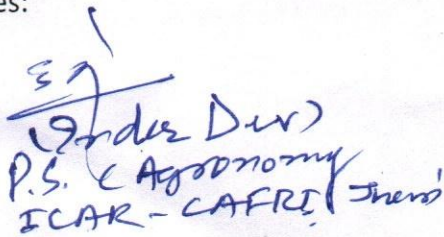 es:
(Inder Dev)
P.S. (Agronomy
ICAR-CAFRI, Jhansi